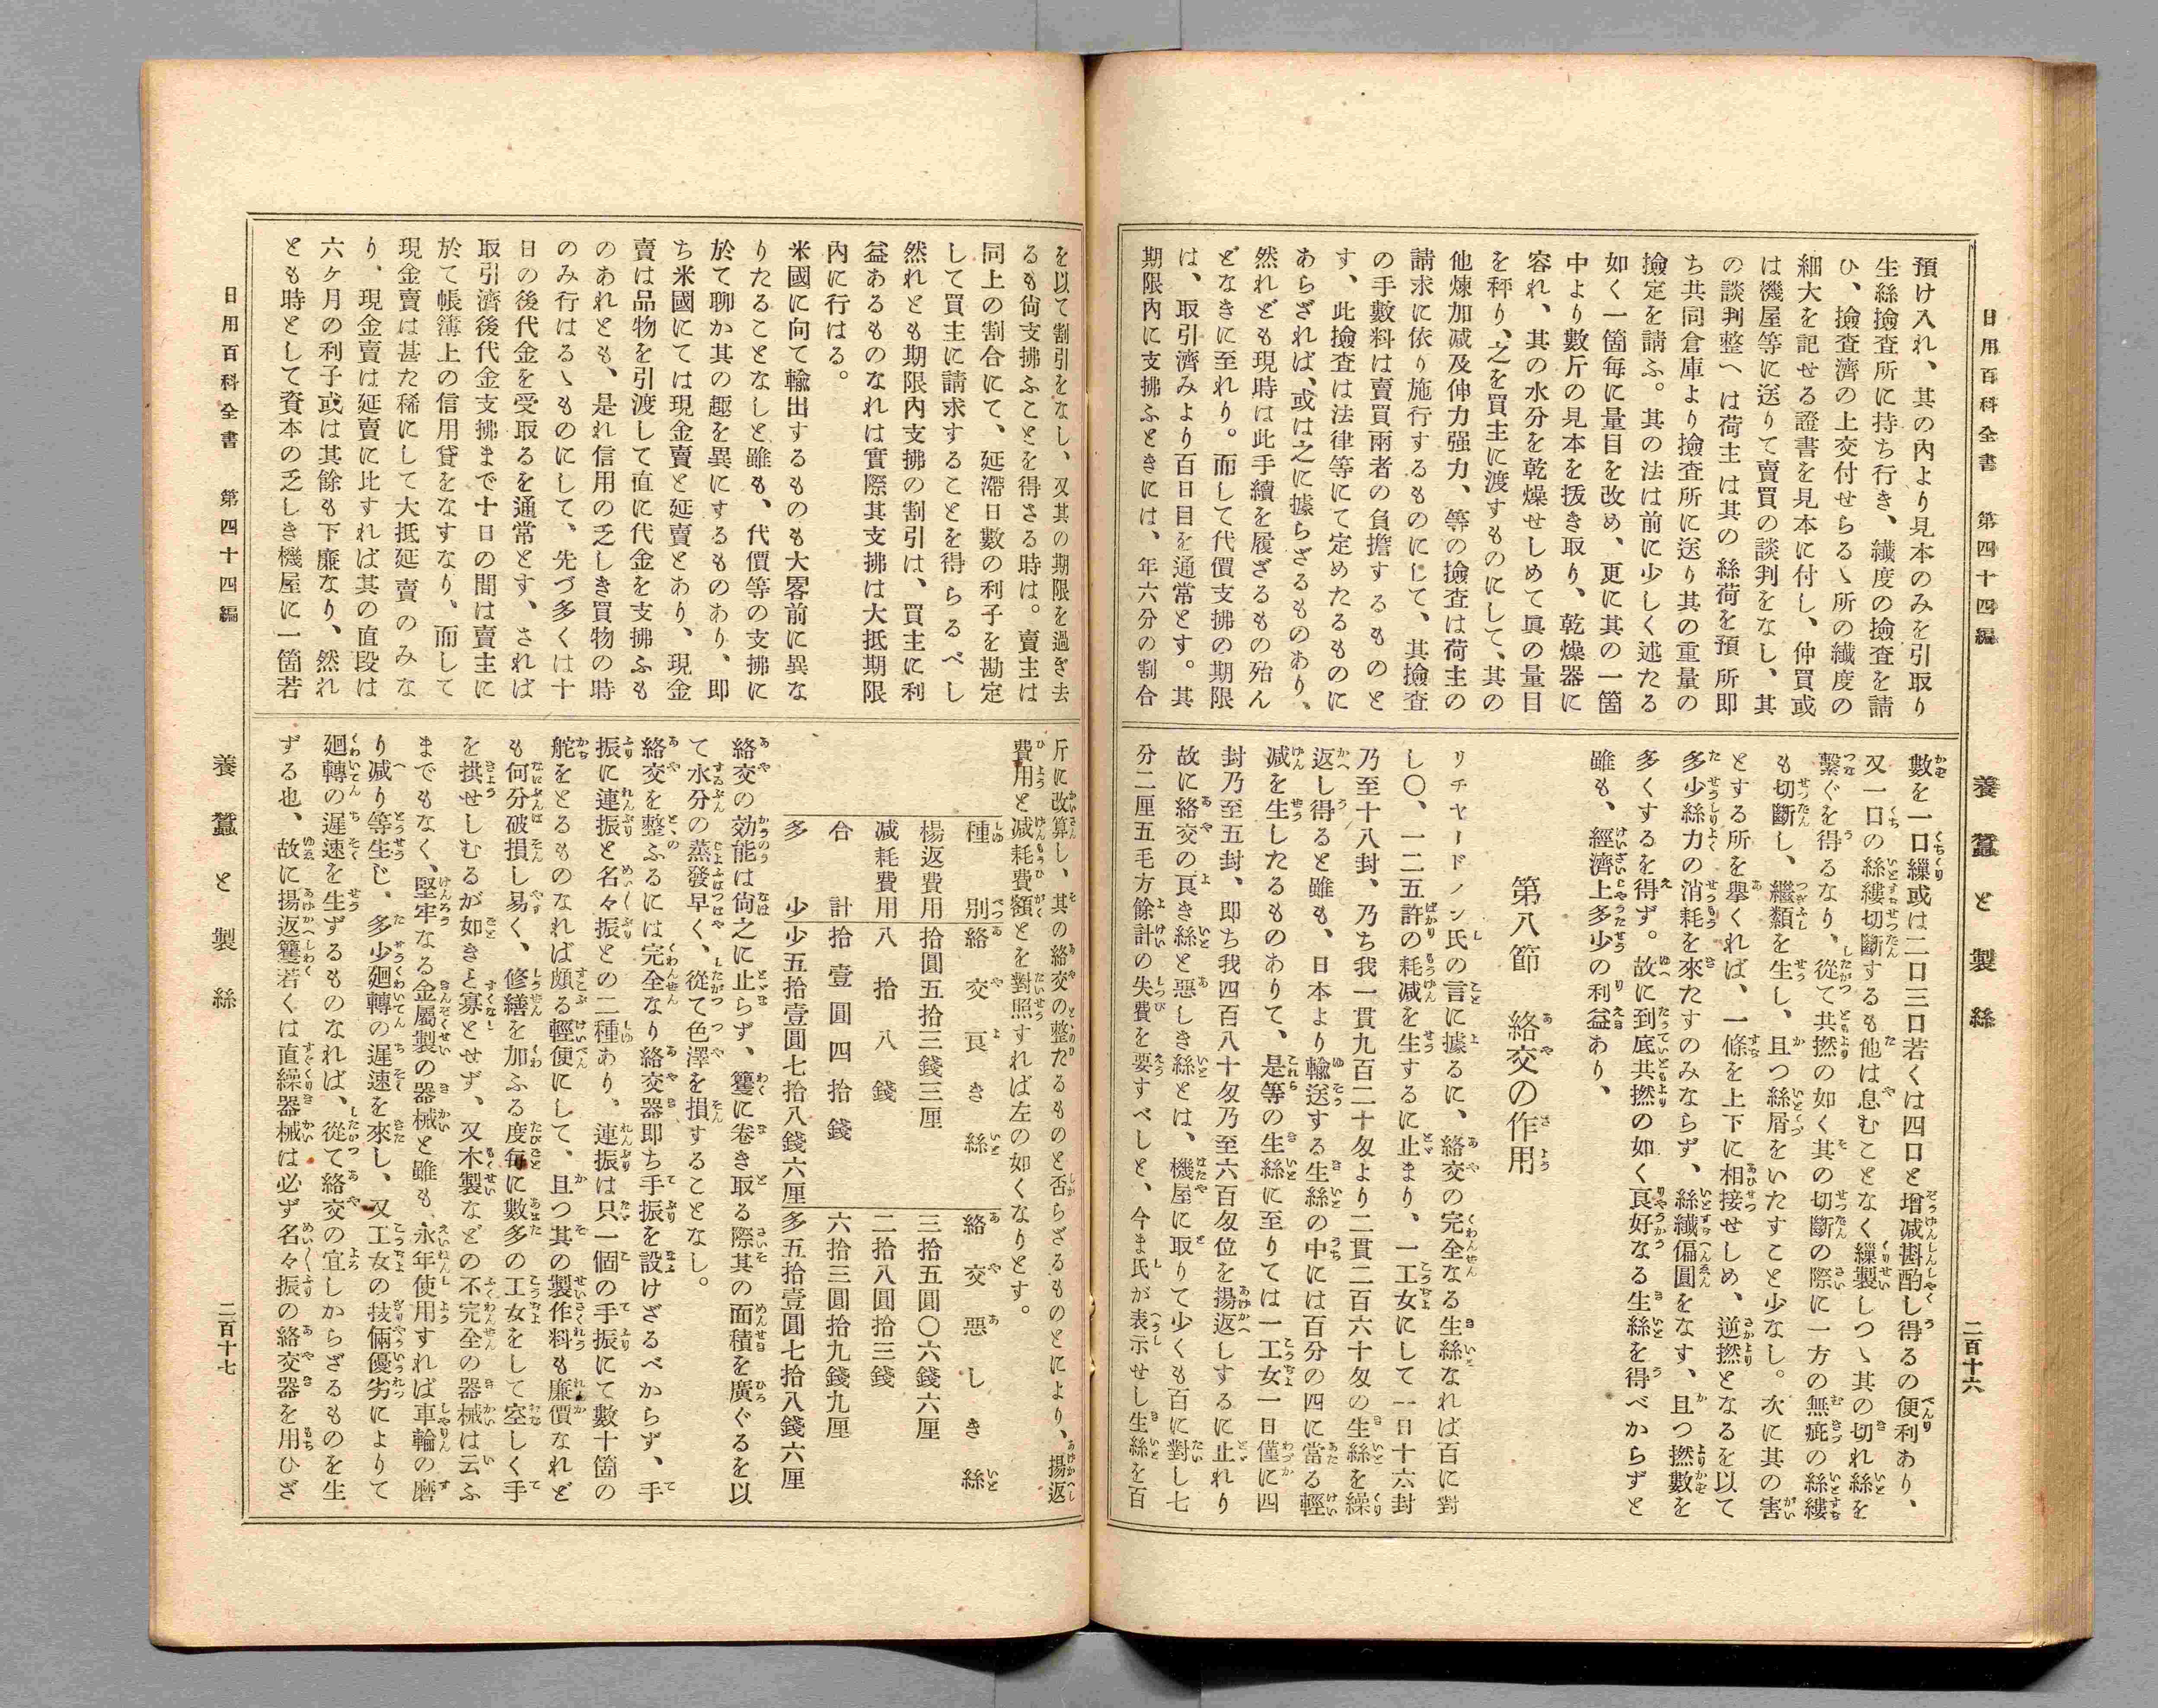 日用百科全書　第四十四編　養蠶と製絲　二百十六
預け入れ、其の內より見本のみを引取り
生絲撿査所に持ち行き、纎度の撿査を請
ひ、撿査濟の上交付せらるゝ所の纎度の
細大を記せる證書を見本に付し、仲買或
は機屋等に送りて賣買の談判をなし、其
の談判整へは荷主は其の絲荷を預所即
ち共同倉庫より撿査所に送り其の重量の
撿定を請ふ。其の法は前に少しく述たる
如く一箇毎に量目を改め、更に其の一箇
中より數斤の見本を拔き取り、乾燥器に
容れ、其の水分を乾燥せしめて眞の量目
を秤り、之を買主に渡すものにして、其の
他煉加減及伸力强力、等の撿査は荷主の
請求に依り施行するものにして、其撿査
の手數料は賣買兩者の負擔するものと
す、此撿査は法律等にて定めたるものに
あらざれば、或は之に據らざるものあり、
然れども現時は此手續を履ざるもの殆ん
どなきに至れり。而して代價支拂の期限
は、取引濟みより百日目を通常とす。其
期限內に支拂ふときには、年六分の割合
數を一口繅或は二口三口若くは四口と增減斟酌し得るの便利あり、
又一口の絲縷切斷するも他は息むことなく繅製しつゝ其の切れ絲を
繫ぐを得るなり、從て共撚の如く其の切斷の際に一方の無疵の絲縷
も切斷し、繼纇を生し、且つ絲屑をいたすこと少なし。次に其の害
とする所を擧くれば、一條を上下に相接せしめ、逆撚となるを以て
多少絲力の消耗を來たすのみならず、絲纎偏圓をなす、且つ撚數を
多くするを得ず。故に到底共撚の如く良好なる生絲を得べからずと
雖も、經濟上多少の利益あり、
第八節　絡交の作用
リチヤードノン氏の言に據るに、絡交の完全なる生絲なれば百に對
し〇、一二五許の耗减を生するに止まり、一工女にして一日十六封
乃至十八封、乃ち我一貫九百二十匁より二貫二百六十匁の生絲を繰
返し得ると雖も、日本より輸送する生絲の中には百分の四に當る輕
减を生したるものありて、是等の生絲に至りては一工女一日僅に四
封乃至五封、即ち我四百八十匁乃至六百匁位を揚返しするに止れり
故に絡交の良き絲と惡しき絲とは、機屋に取りて少くも百に對し七
分二厘五毛方餘計の失費を要すべしと、今ま氏が表示せし生絲を百
を以て割引をなし、又其の期限を過ぎ去
るも尙支拂ふことを得さる時は。賣主は
同上の割合にて、延滯日數の利子を勘定
して買主に請求することを得らるべし
然れとも期限內支拂の割引は、買主に利
益あるものなれは實際其支拂は大抵期限
內に行はる。
米國に向て輸出するものも大畧前に異な
りたることなしと雖も、代價等の支拂に
於て聊か其の趣を異にするものあり、即
ち米國にては現金賣と延賣とあり、現金
賣は品物を引渡して直に代金を支拂ふも
のあれとも、是れ信用の乏しき買物の時
のみ行はるゝものにして、先づ多くは十
日の後代金を受取るを通常とす、されば
取引濟後代金支拂まで十日の間は賣主に
於て帳簿上の信用貸をなすなり、而して
現金賣は甚た稀にして大抵延賣のみな
り、現金賣は延賣に比すれば其の直段は
六ケ月の利子或は其餘も下廉なり、然れ
とも時として資本の乏しき機屋に一箇若
斤に改算し、其の絡交の整たるものと否らざるものとにより、揚返
費用と减耗費額とを對照すれば左の如くなりとす。
種別　絡交良き絲　絡交惡しき絲
楊返費用　拾圓五拾三錢三厘　三拾五圓〇六錢六厘
減耗費用　八拾八錢　二拾八圓拾三錢
合計　拾壹圓四拾錢　六拾三圓拾九錢九厘
多少　少五拾壹圓七拾八錢六厘　多五拾壹圓七拾八錢六厘
絡交の効能は尙之に止らず、籰に卷き取る際其の面積を廣ぐるを以
て水分の蒸發早く、從て色澤を損することなし。
絡交を整ふるには完全なり絡交器即ち手振を設けざるべからず、手
振に連振と名々振との二種あり、連振は只一個の手振にて數十箇の
舵をとるものなれば頗る輕便にして、且つ其の製作料も廉價なれど
も何分破損し易く、修繕を加ふる度毎に數多の工女をして空しく手
を拱せしむるが如きと寡とせず、又木製などの不完全の器械は云ふ
までもなく、堅牢なる金屬製の器械と雖も、永年使用すれば車輪の磨
り減り等生じ、多少廻轉の遲速を來し、又工女の技倆優劣によりて
廻轉の遲速を生ずるものなれば、從て絡交の宜しからざるものを生
ずる也、故に揚返籰若くは直繰器械は必ず名々振の絡交器を用ひざ
日用百科全書　第四十四編　養蠶と製絲　二百十七